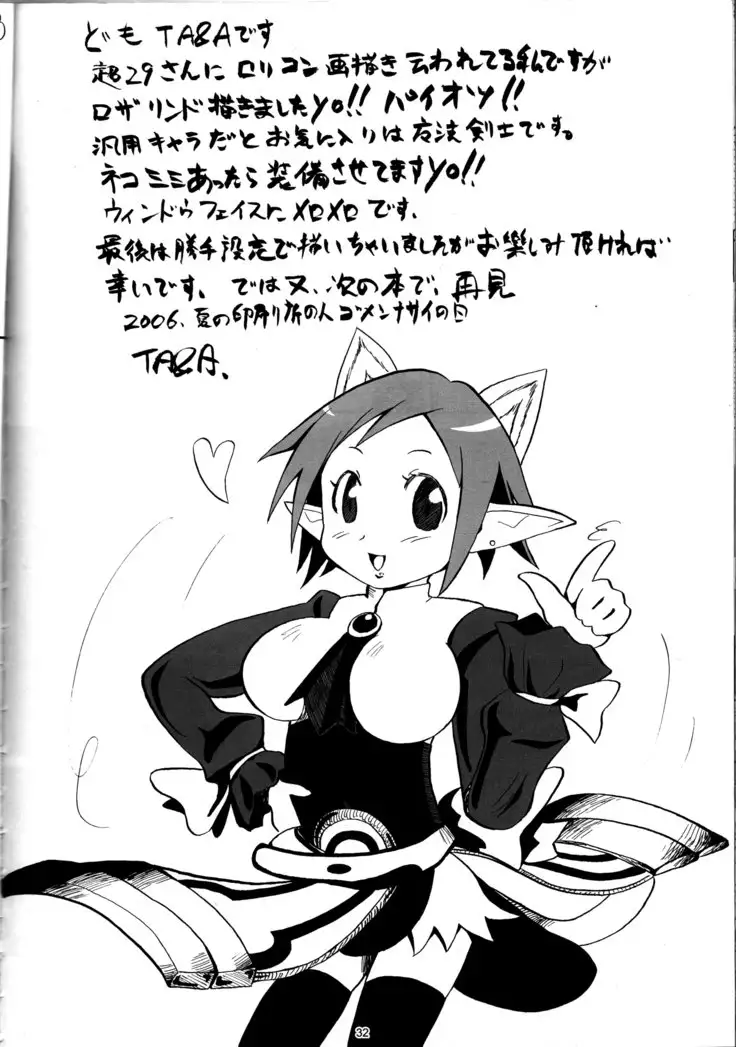 どもTA&Aです
超29さんにロリコン画描き云われてる私んですが
ロザリンド描きましたyo!! パイオツ!!
汎用キャラだとお気に入りは魔法剣士です。
ネコミミあったら装備させてますyo!!
ウィンドゥフェイスにメロメロです。
最後は勝手設定で描いちゃいましたがお楽しみ頂ければ
幸いです。では又、次の本で、再見
2006.夏の印刷り所の人ゴメンナサイの日
TA&A.
32